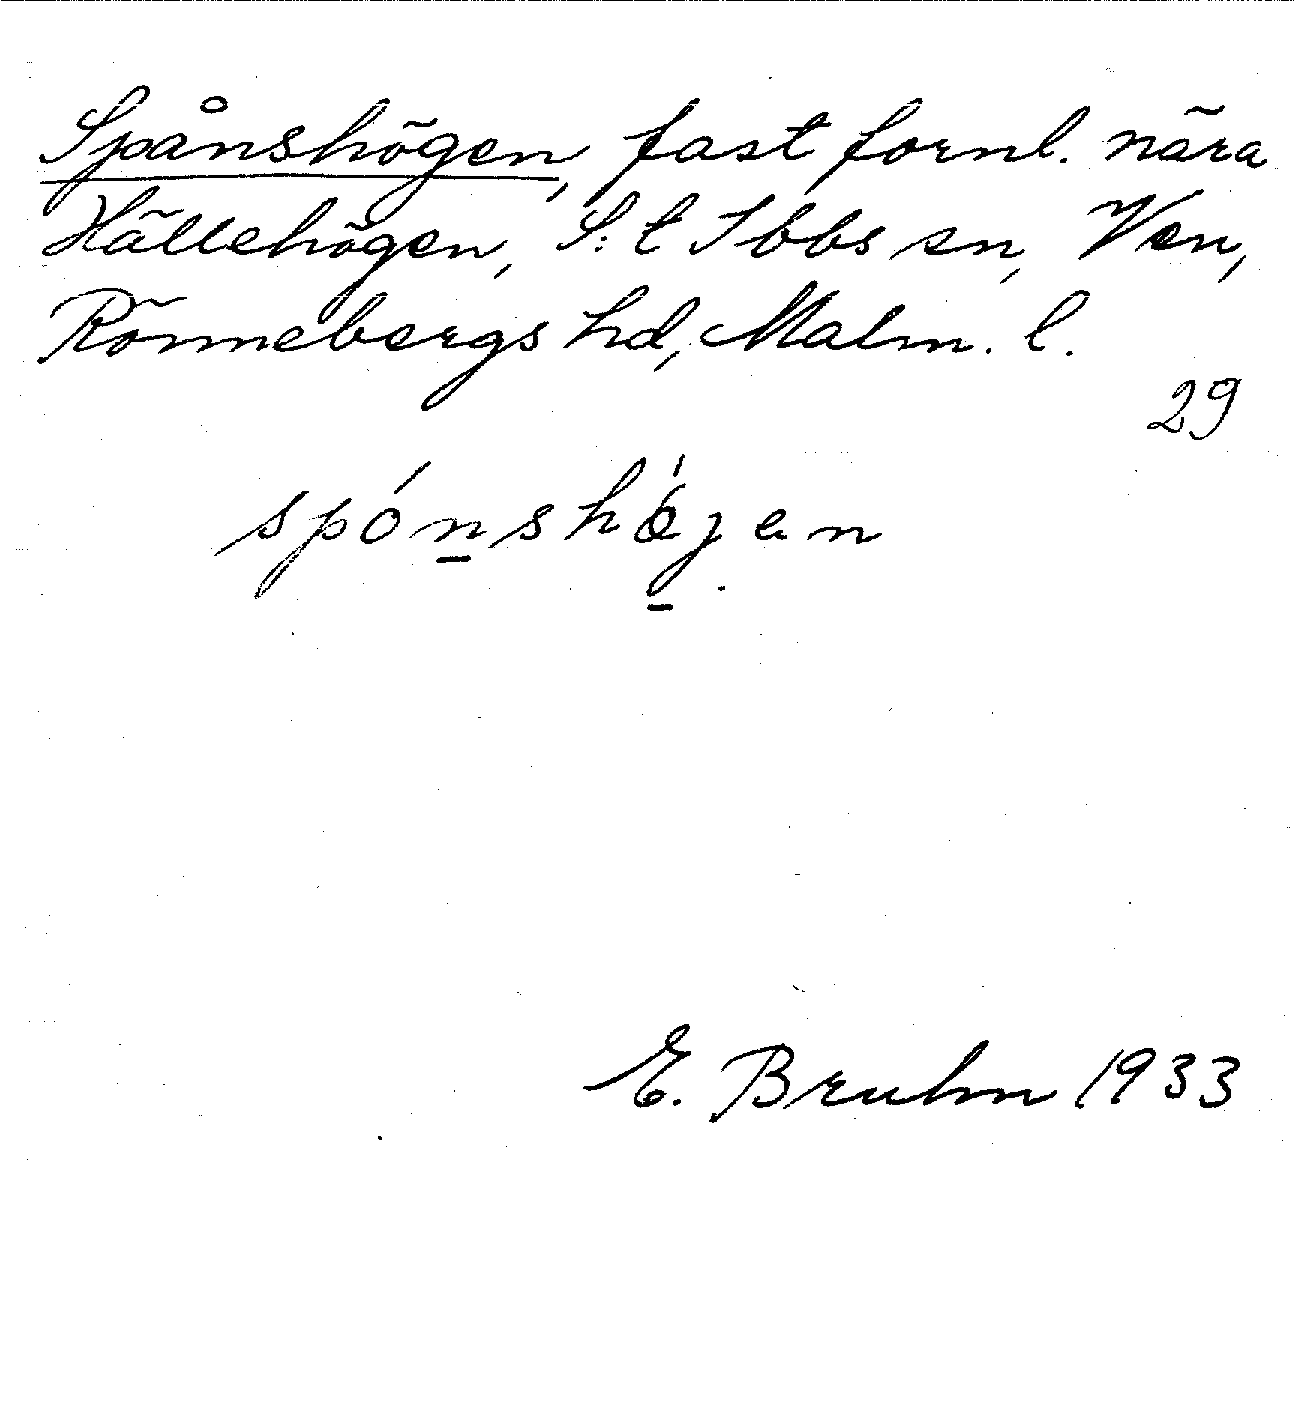 Spånshögen, fast fornl. nära
Hällehögen, S:t Ibbs sn, Ven,
Rönnebergs hd, Malm. l.
29
E. Bruhn 1933